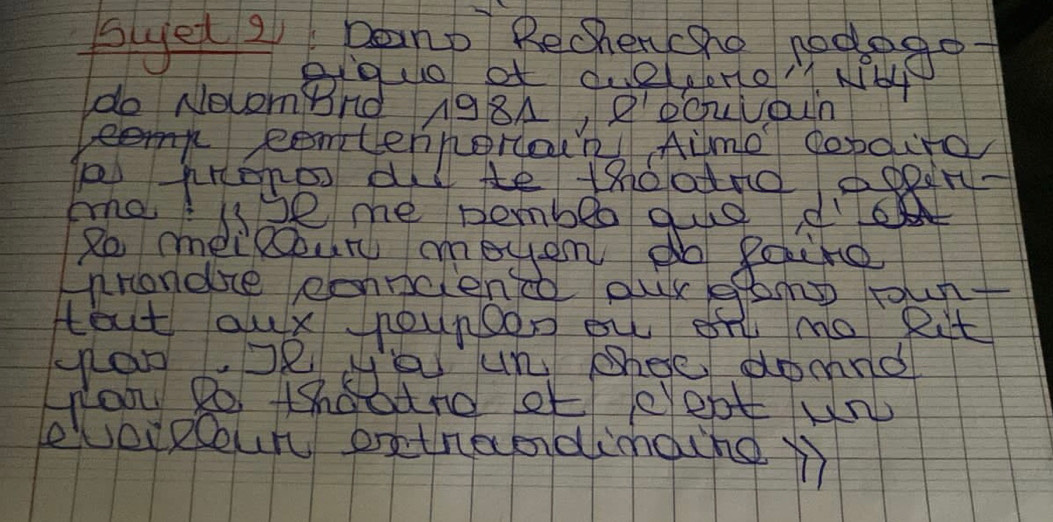 Sujet 2 : Dans Recherche pedago-
gique et culture" N°44
de Novembre 1981, l'écrivain
comp comtenporain Aimé Cesaire
a propos du te théatre, affir-
me : « Il me semble que c'est
le meilleur moyen de faire
prendre conscience aux gens sur-
tout aux peuples ou on ne lit
pas. Il y'a un choc donné
par le théatre et c'est un
eveilleur extraordinaire »